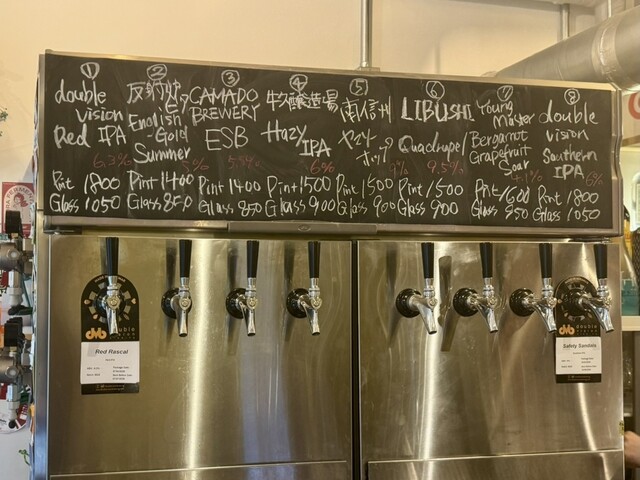 ①
double
vision
Red IPA
6.3%
Pint 1800
Glass 1050
②
反射炉
English
Gold
Summer
Pint 1400
Glass 850
③
CAMADO
BREWERY
ESB
Pint 1400
Glass 850
④
牛久醸造場
Hazy
IPA
6%
Pint 1500
Glass 900
⑤
南信州
Pint 1500
Glass 900
⑥
LIBUSHI
Quadrupel
9.5%
Pint 1500
Glass 900
⑦
Young
Master
Bergamot
Grapefruit
Soar
Pint 1600
Glass 950
⑧
double
vision
Southern
IPA
6%
Pint 1800
Glass 1050
dvb
double
vision
Red Rascal
dvb
double